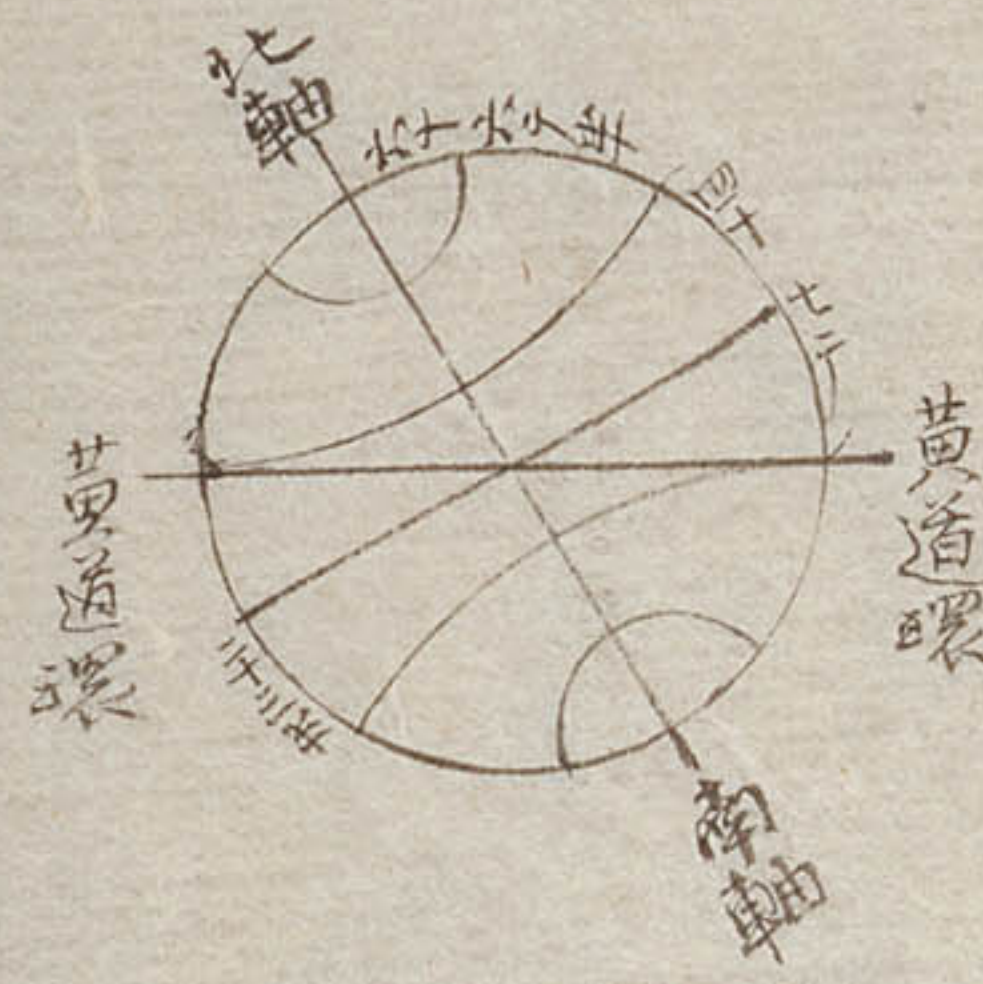 北軸
六十六ヶ半
四十
七二
黄道環
黄道環
二十三半
南軸